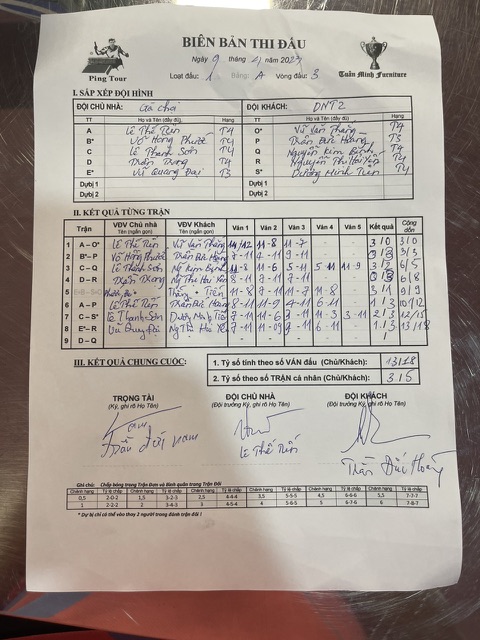 BIÊN BẢN THI ĐẤU
Ping Tour
Ngày 9 tháng 4 năm 2023
Loạt đấu: 1 Bảng: A Vòng đấu: 3
Tuấn Minh Furniture
I. SẮP XẾP ĐỘI HÌNH
ĐỘI CHỦ NHÀ: Gà chơi ĐỘI KHÁCH: DNT2
TT Họ và Tên (đầy đủ) Hạng TT Họ và Tên (đầy đủ) Hạng
A Lê Thế Tiến T4 O* Vũ Văn Thắng T4
B* Võ Hồng Phước T4 P Trần Đức Hoàng T3
C Lê Thanh Sơn T4 Q Nguyễn Kim Định T4
D Trần Trung T4 R Nguyễn Thị Hải Yến T4
E* Vũ Quang Đại T3 S* Dương Minh Tiến T4
Dự bị 1 Dự bị 1
Dự bị 2 Dự bị 2
II. KẾT QUẢ TỪNG TRẬN
Trận VĐV Chủ nhà VĐV Khách Ván 1 Ván 2 Ván 3 Ván 4 Ván 5 Kết quả Cộng dồn
Tên (ngắn gọn) Tên (ngắn gọn)
1 A – O* Lê Thế Tiến Vũ Văn Thắng 14/12 11-8 11-7 - - 3/0 3/0
2 B*– P Võ Hồng Phước Trần Đức Hoàng 7-11 4-11 9-11 - - 0/3 3/3
3 C – Q Lê Thanh Sơn Ng Kim Định 11-8 11-6 5-11 5-11 11-9 3/2 6/5
4 D – R Trần Trung Ng Thị Hải Yến 8-11 7-11 7-11 - - 0/3 6/8
5 Thắng - Tiến 11-8 7-11 11-7 11-8 - 3/1 9/9
6 A – P Lê Thế Tiến Trần Đức Hoàng 8-11 11-9 4-11 6-11 - 1/3 10/12
7 C – S* Lê Thanh Sơn Dương Minh Tiến 7-11 11-6 3-11 11-3 3-11 2/3 12/15
8 E*– R Vũ Quang Đại Ng Thị Hải Yến 7-11 11-09 7-11 6-11 - 1/3 13/18
9 D – Q - - - - - /
III. KẾT QUẢ CHUNG CUỘC:
1. Tỷ số tính theo số VÁN đấu (Chủ/Khách): 13/18
2. Tỷ số theo số TRẬN cá nhân (Chủ/Khách): 3/5
TRỌNG TÀI ĐỘI CHỦ NHÀ ĐỘI KHÁCH
(Ký, ghi rõ Họ Tên) (Đội trưởng Ký, ghi rõ Họ Tên) (Đội trưởng Ký, ghi rõ Họ Tên)
Nam
Lê Thế Tiến
Trần Đức Hoàng
Ghi chú: Chấp bóng trong Trận Đơn và Bình quân trong Trận Đôi
Chênh hạng Tỷ lệ chấp Chênh hạng Tỷ lệ chấp Chênh hạng Tỷ lệ chấp Chênh hạng Tỷ lệ chấp Chênh hạng Tỷ lệ chấp Chênh hạng Tỷ lệ chấp
0,5 2-0-2 1,5 3-2-3 2,5 4-4-4 3,5 5-5-5 4,5 6-6-6 5,5 7-7-7
1 2-2-2 2 3-4-3 3 4-5-4 4 5-6-5 5 6-7-6 6 7-8-7
* Dự bị chỉ có thể vào thay 2 người trong đánh trận đôi !